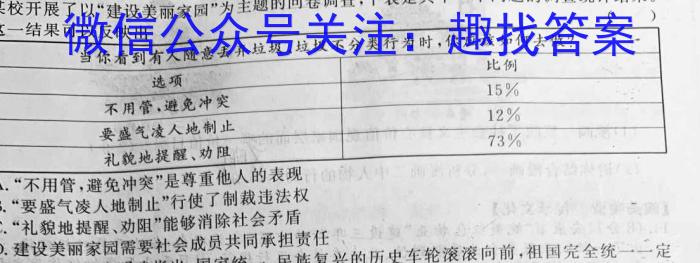 某校开展了以“建设美丽家园”为主题的问卷调查,下表是其中一个问题的调查统计结果。
这一结果可以反映出
微信公众号关注：趣找答案
当你看到有人随意丢弃垃圾、垃圾不分类行为时,你
选项 比例
不用管,避免冲突 15%
要盛气凌人地制止 12%
礼貌地提醒、劝阻 73%
A.“不用管,避免冲突”是尊重他人的表现
B.“要盛气凌人地制止”行使了制裁违法权
C.“礼貌地提醒、劝阻”能够消除社会矛盾
D.建设美丽家园需要社会成员共同承担责任
民族复兴的历史车轮滚滚向前,祖国完全统一一定